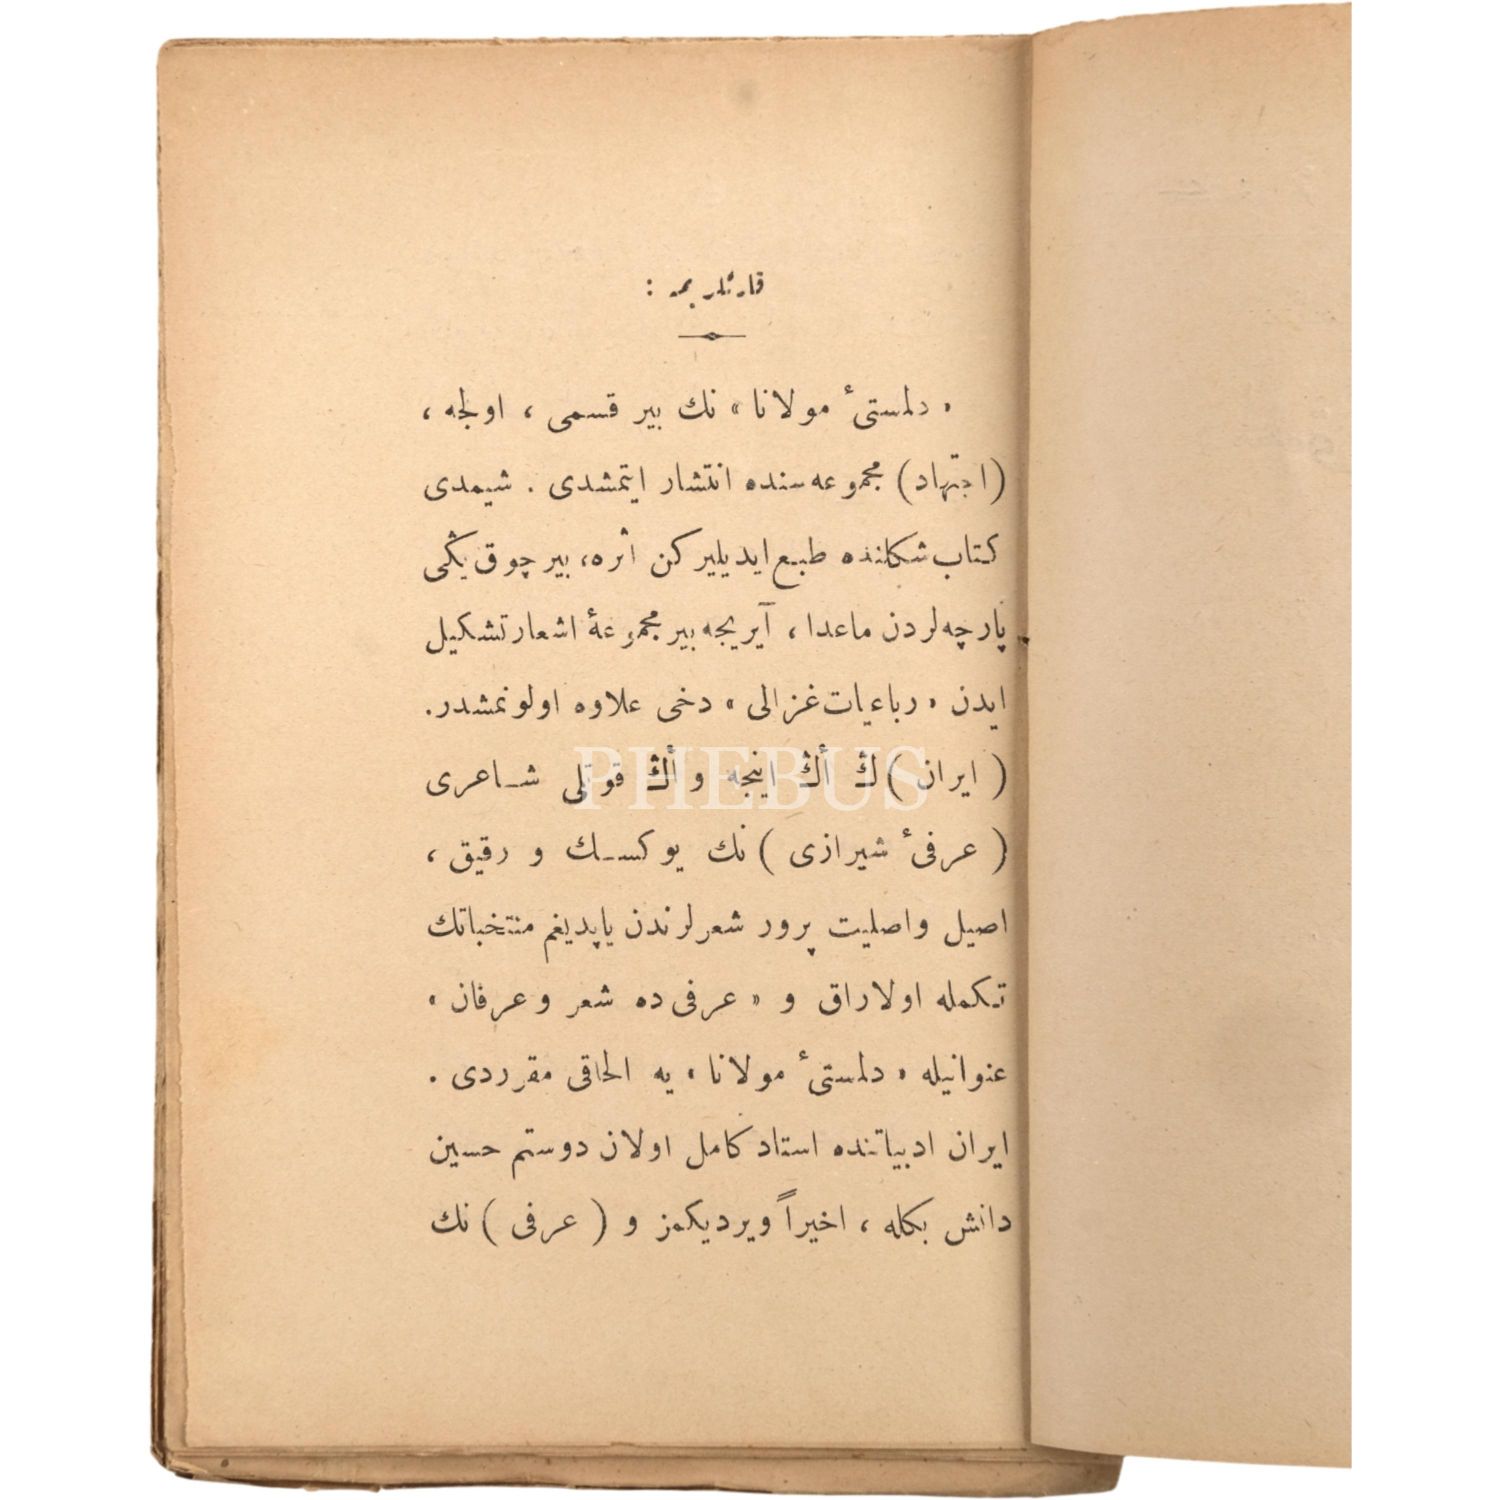 قارئلریمه :
« دلمستیٔ مولانا » نك بیر قسمی ، اولجه ،
(اجتهاد) مجموعه‌سنده انتشار ایتمشدی . شیمدی
كتاب شكلنده طبع ایدیلیركن اثره، بیر چوق یڭی
پارچه‌لردن ماعدا ، آیریجه بیر مجموعۀ اشعار تشكیل
ایدن « رباعیات غزالی » دخی علاوه اولونمشدر.
( ایران ) ڭ أڭ اینجه و أڭ قوتلی شاعری
( عرفیٔ شیرازی ) نك یوكسك و رقیق ،
اصیل واصلیت پرور شعرلرندن یاپدیغم منتخباتك
تكمله اولاراق و « عرفی ده شعر و عرفان »
عنوانیله « دلمستیٔ مولانا » یه الحاقی مقرردی .
ایران ادبیاتنده استاد كامل اولان دوستم حسین
دانش بكله ، اخیراً ویردیكمز و ( عرفی ) نك
PHEBUS